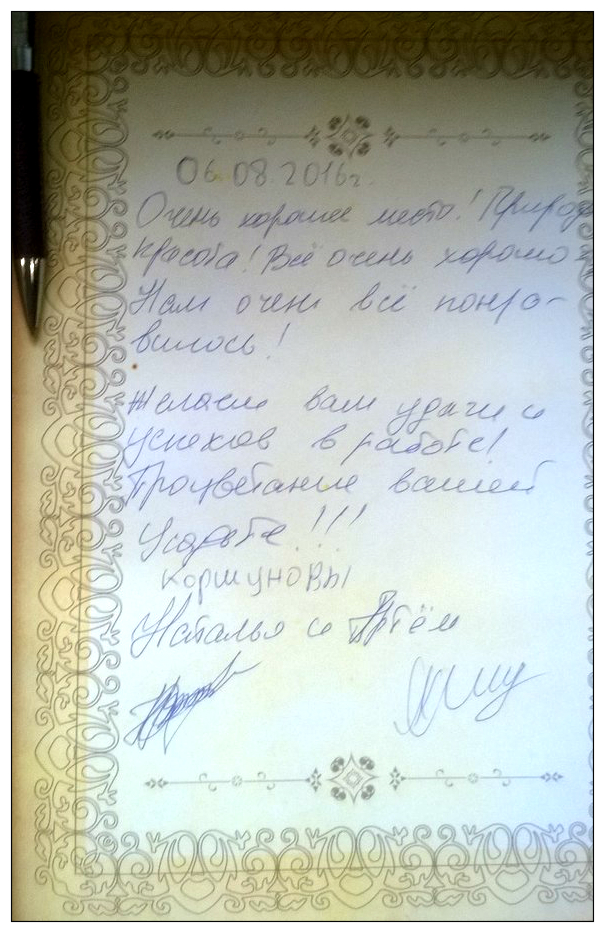 06.08.2016г.
Очень хорошее место! Природа
красота! Всё очень хорошо
Нам очень всё понра-
вилось!
Желаем вам удачи и
успехов в работе!
Процветание вашей
Усадьбе!!!
Коршуновы
Наталья и Артём